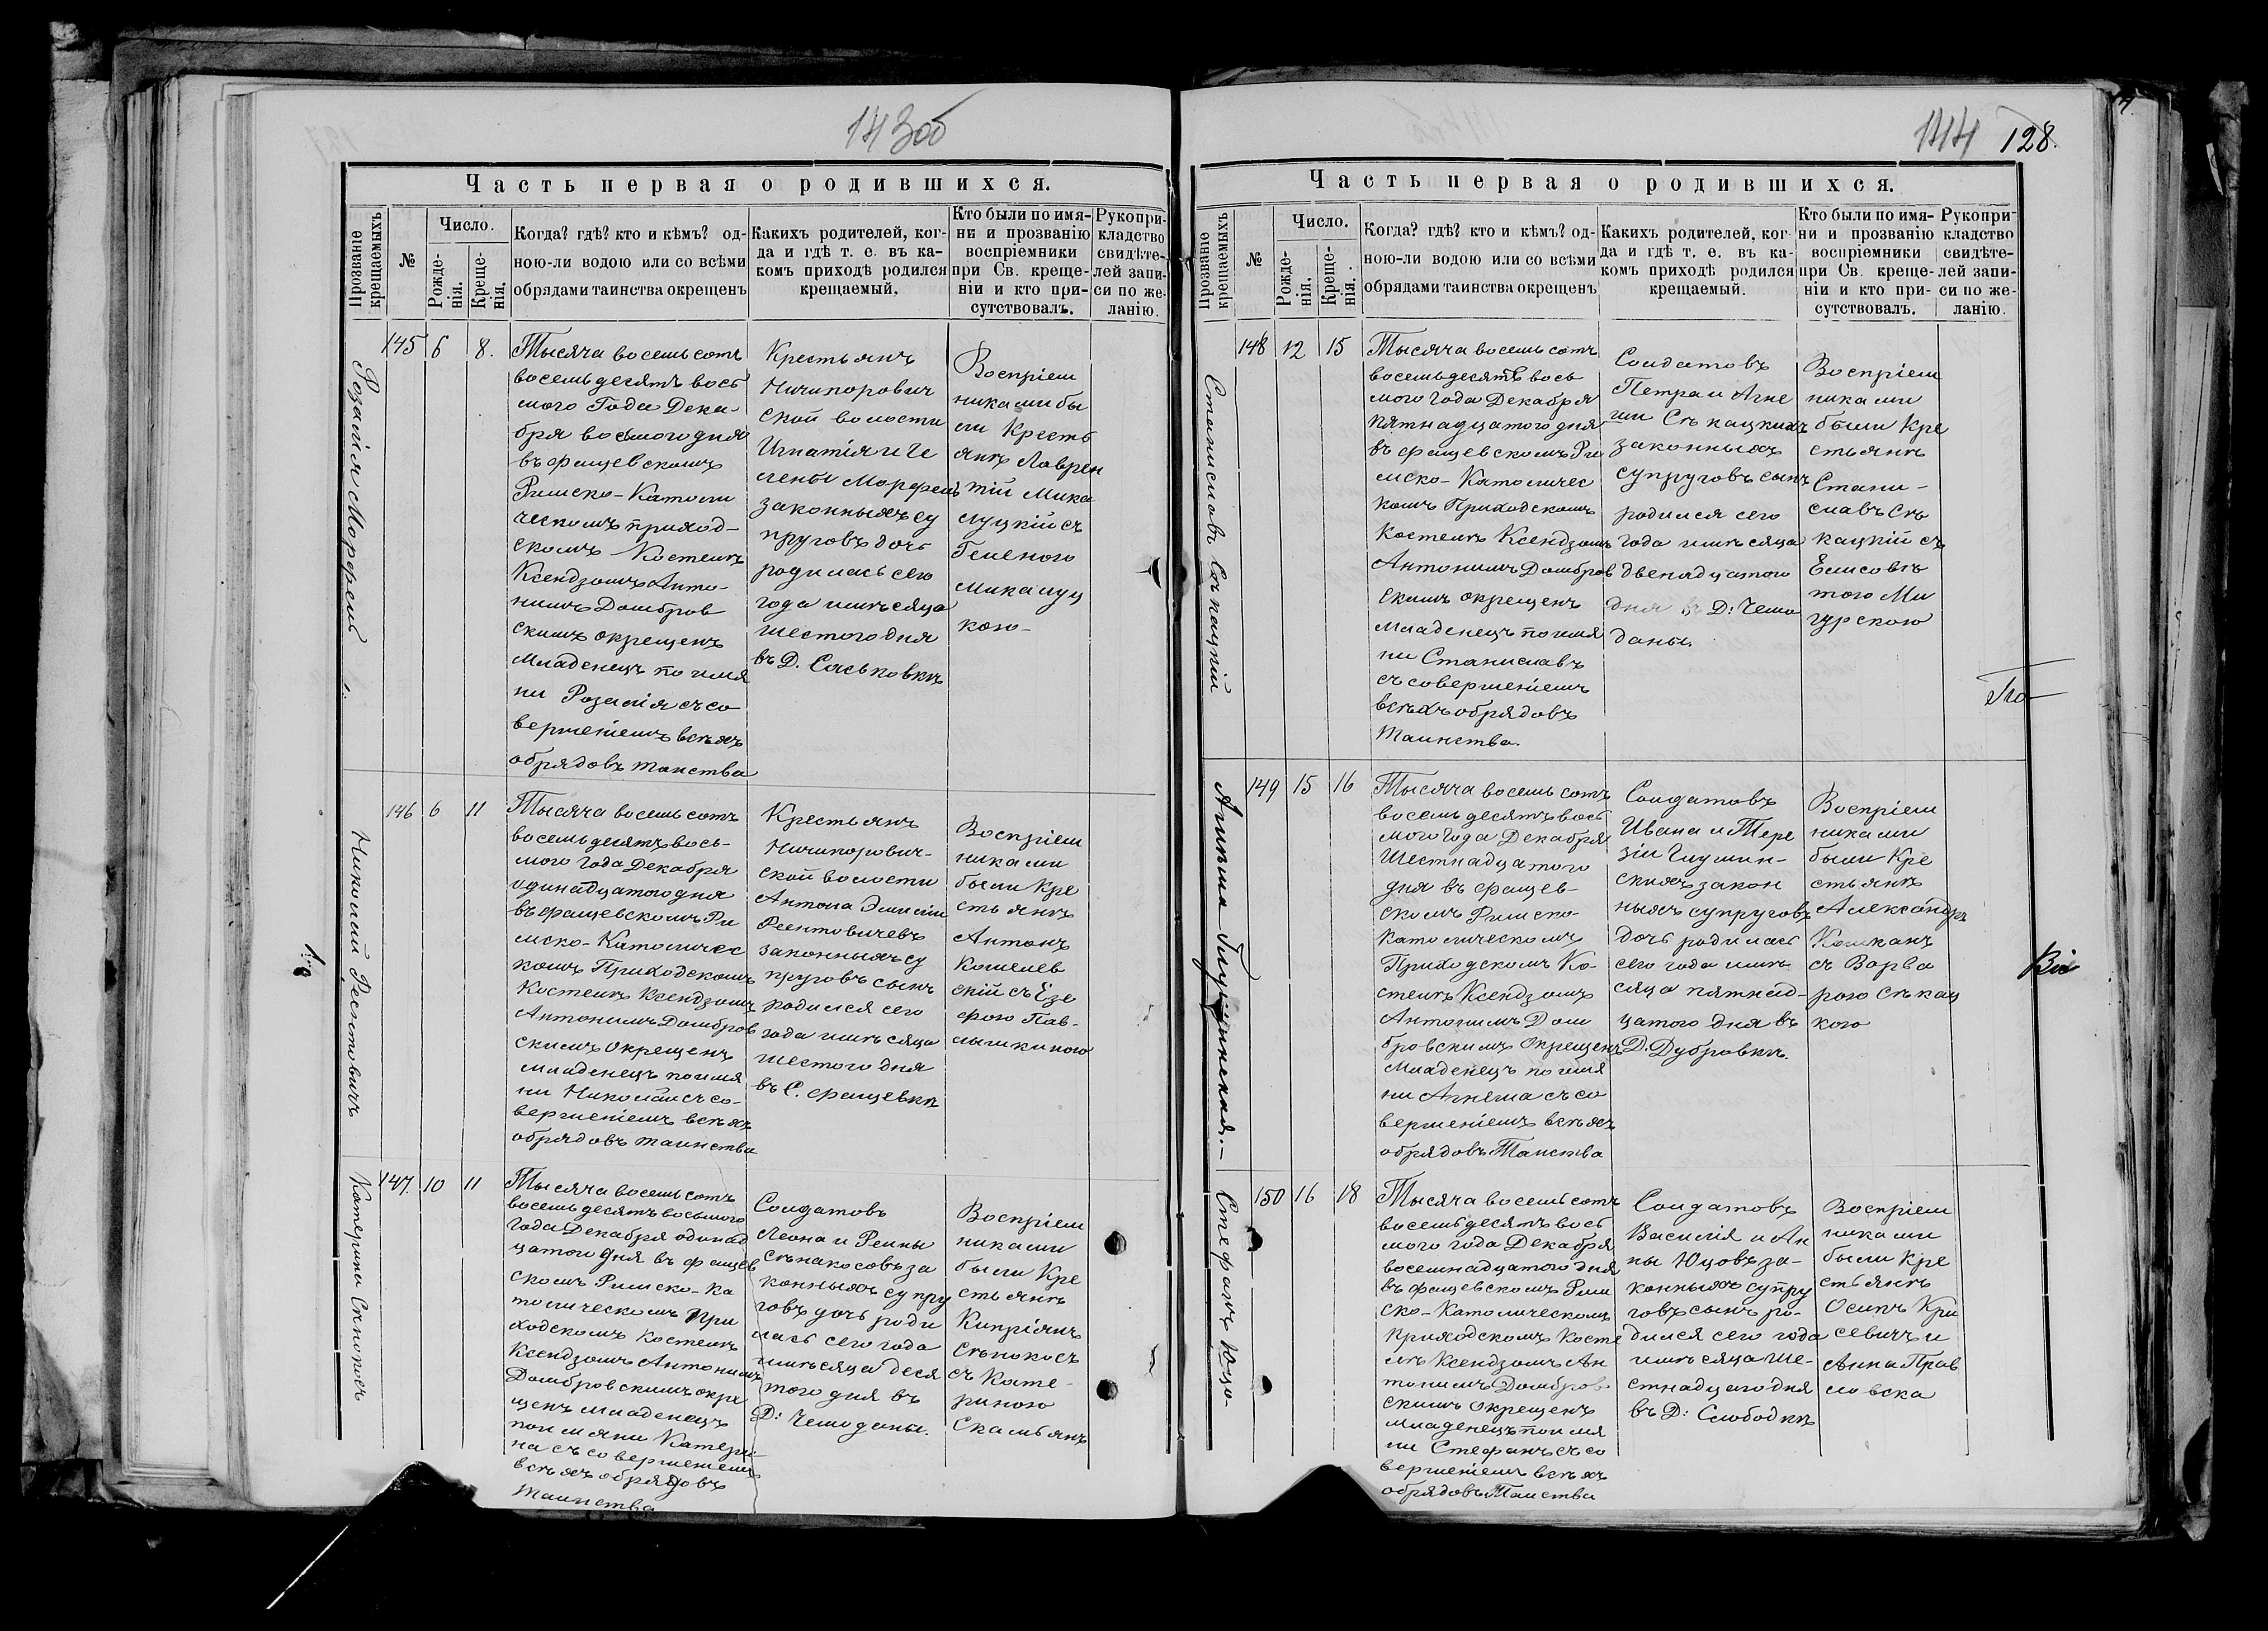 143об
Часть первая о родившихся.
Прозваніе крещаемыхъ
№
Число.
Рожде-
нія.
Креще-
нія.
Когда? гдѣ? кто и кѣмъ? од-
ною-ли водою или со всѣми
обрядами таинства окрещенъ
Какихъ родителей, ког-
да и гдѣ т. е. въ ка-
комъ приходѣ родился
крещаемый.
Кто были по имя-
ни и прозванію
воспріемники
при Св. креще-
ніи и кто при-
сутствовалъ.
Рукопри-
кладство
свидѣте-
лей запи-
си по же-
ланію.
Розалія Морфель
145 6 8.
Тысяча восемьсотъ
восемьдесятъ вось
мого Года Дека
бря восьмого дня
въ Фащевскомъ
Римско-Католи
ческомъ приход-
скомъ Костелѣ
Ксендзомъ Анто-
нимъ Домбров
скимъ окрещенъ
Младенецъ по имя
ни Розалія съ со
вершеніемъ всѣхъ
обрядовъ таиства
Крестьянъ
Ничипорович
ской волости
Игнатія и Ге
лены Морфель
законныхъ су
пруговъ дочь
родилась сего
года и мѣсяца
шестого дня
въ Д. Саськовкѣ
Воспріем
никами бы
ли Кресть
янѣ Лаврен
тій Мика
луцкій съ
Геленою
Микалуц
кою-
Николай Рентовичъ
146 6 11
Тысяча восемьсотъ
восемьдесятъ вось-
мого года Декабря
одинадцатого дня
въ Фащевскомъ Ри
мско-Католичес
комъ Приходскомъ
Костелѣ Ксендзомъ
Антонимъ Домбров
скимъ окрещенъ
младенецъ по имя
ни Николай съ со-
вершеніемъ всѣхъ
обрядовъ таинства
Крестьянъ
Ничипорович-
ской волости
Антона Эмиліи
Рентовичевъ
законныхъ су
пруговъ сынъ
родился сего
года и мѣсяца
шестого дня
въ С. Фащевкѣ
Воспріем
никами
были Кре
стьянѣ
Антонъ
Кошелев
скій съ Езе
фою Пав-
лышкиного
Катерина Сѣнокосъ
147. 10 11
Тысяча восемьсотъ
восемьдесятъ восьмого
года Декабря одинад
цатого дня въ Фащев
скомъ Римско-Ка
толическомъ При
ходскомъ Костелѣ
Ксендзомъ Антонимъ
Домбровскимъ окре
щенъ младенецъ
по имяни Катери
на съ совершеніемъ
всѣхъ обрядовъ
Таинства
Солдатовъ
Леона и Регины
Сѣнакосовъ за
конныхъ супру
говъ дочь роди
лась сего года
и мѣсяца деся
того дня въ
Д: Чемоданы.
Воспріем
никами
были Кре
стьянѣ
Кипріянъ
Сѣнокосъ
съ Кате-
риною
Скамбянъ
144 128.
Часть первая о родившихся.
Прозваніе крещаемыхъ
№
Число.
Рожде-
нія.
Креще-
нія.
Когда? гдѣ? кто и кѣмъ? од-
ною-ли водою или со всѣми
обрядами таинства окрещенъ
Какихъ родителей, ког-
да и гдѣ т. е. въ ка-
комъ приходѣ родился
крещаемый.
Кто были по имя-
ни и прозванію
воспріемники
при Св. креще-
ніи и кто при-
сутствовалъ.
Рукопри-
кладство
свидѣте-
лей запи-
си по же-
ланію.
Станиславъ Сѣкацкій
148 12 15
Тысяча восемьсотъ
восемьдесятъ вось
мого года Декабря
пятнадцатого дня
въ Фащевскомъ Ри
мско-Католичес
комъ Приходскомъ
Костелѣ Ксендзомъ
Антонимъ Домбров
скимъ окрещенъ
младенецъ по имя
ни Станиславъ
съ совершеніемъ
всѣхъ обрядовъ
Таинства.
Солдатовъ
Петра и Агне
ши Сѣкацкихъ
законныхъ
супруговъ сынъ
родился сего
года и мѣсяца
двенадцатого
дня въ Д: Чемо
даны.
Воспріем
никами
были Кре
стьянѣ
Стани-
славъ Сѣ
кацкій съ
Елисовѣ
тою Ми
гурскою
Агнѣша Глушинская.-
149 15 16
Тысяча восемьсотъ
восемьдесятъ вось
мого года Декабря
Шестнадцатого
дня въ Фащев-
скомъ Римско-
Католическомъ
Приходскомъ Ко-
стелѣ Ксендзомъ
Антонимъ Дом
бровскимъ Окрещенъ
Младенецъ по имя
ни Агнеша съ со
вершеніемъ всѣхъ
обрядовъ Таиства
Солдатовъ
Ивана и Тере
зіи Глушин-
скихъ закон
ныхъ супруговъ
дочь родилась
сего года и мѣ
сяца пятнад-
цатого дня въ
Д. Дубровкѣ.
Воспріем
никами
были Кре
стьянѣ
Александръ
съ Варва
рою Сѣкац
кого
Стефанъ Юцо-
150 16 18
Тысяча восемьсотъ
восемьдесятъ вось
мого года Декабря
восемнадцатого дня
въ Фащевскомъ Рим
ско-Католическомъ
приходскомъ Косте
лѣ Ксендзомъ Ан
тонимъ Домбров-
скимъ Окрещенъ
младенецъ по имя
ни Стефанъ съ со
вершеніемъ всѣхъ
обрядовъ Таиства
Солдатовъ
Василія и Ан
ны Юцовъ за-
конныхъ супру
говъ сынъ ро-
дился сего года
и мѣсяца Ше-
стнадцаго дня
въ Д: Слободкѣ
Воспріем
никами
были Кре
стьянѣ
Осипъ Кри
севичъ и
Анна Прав
ловска